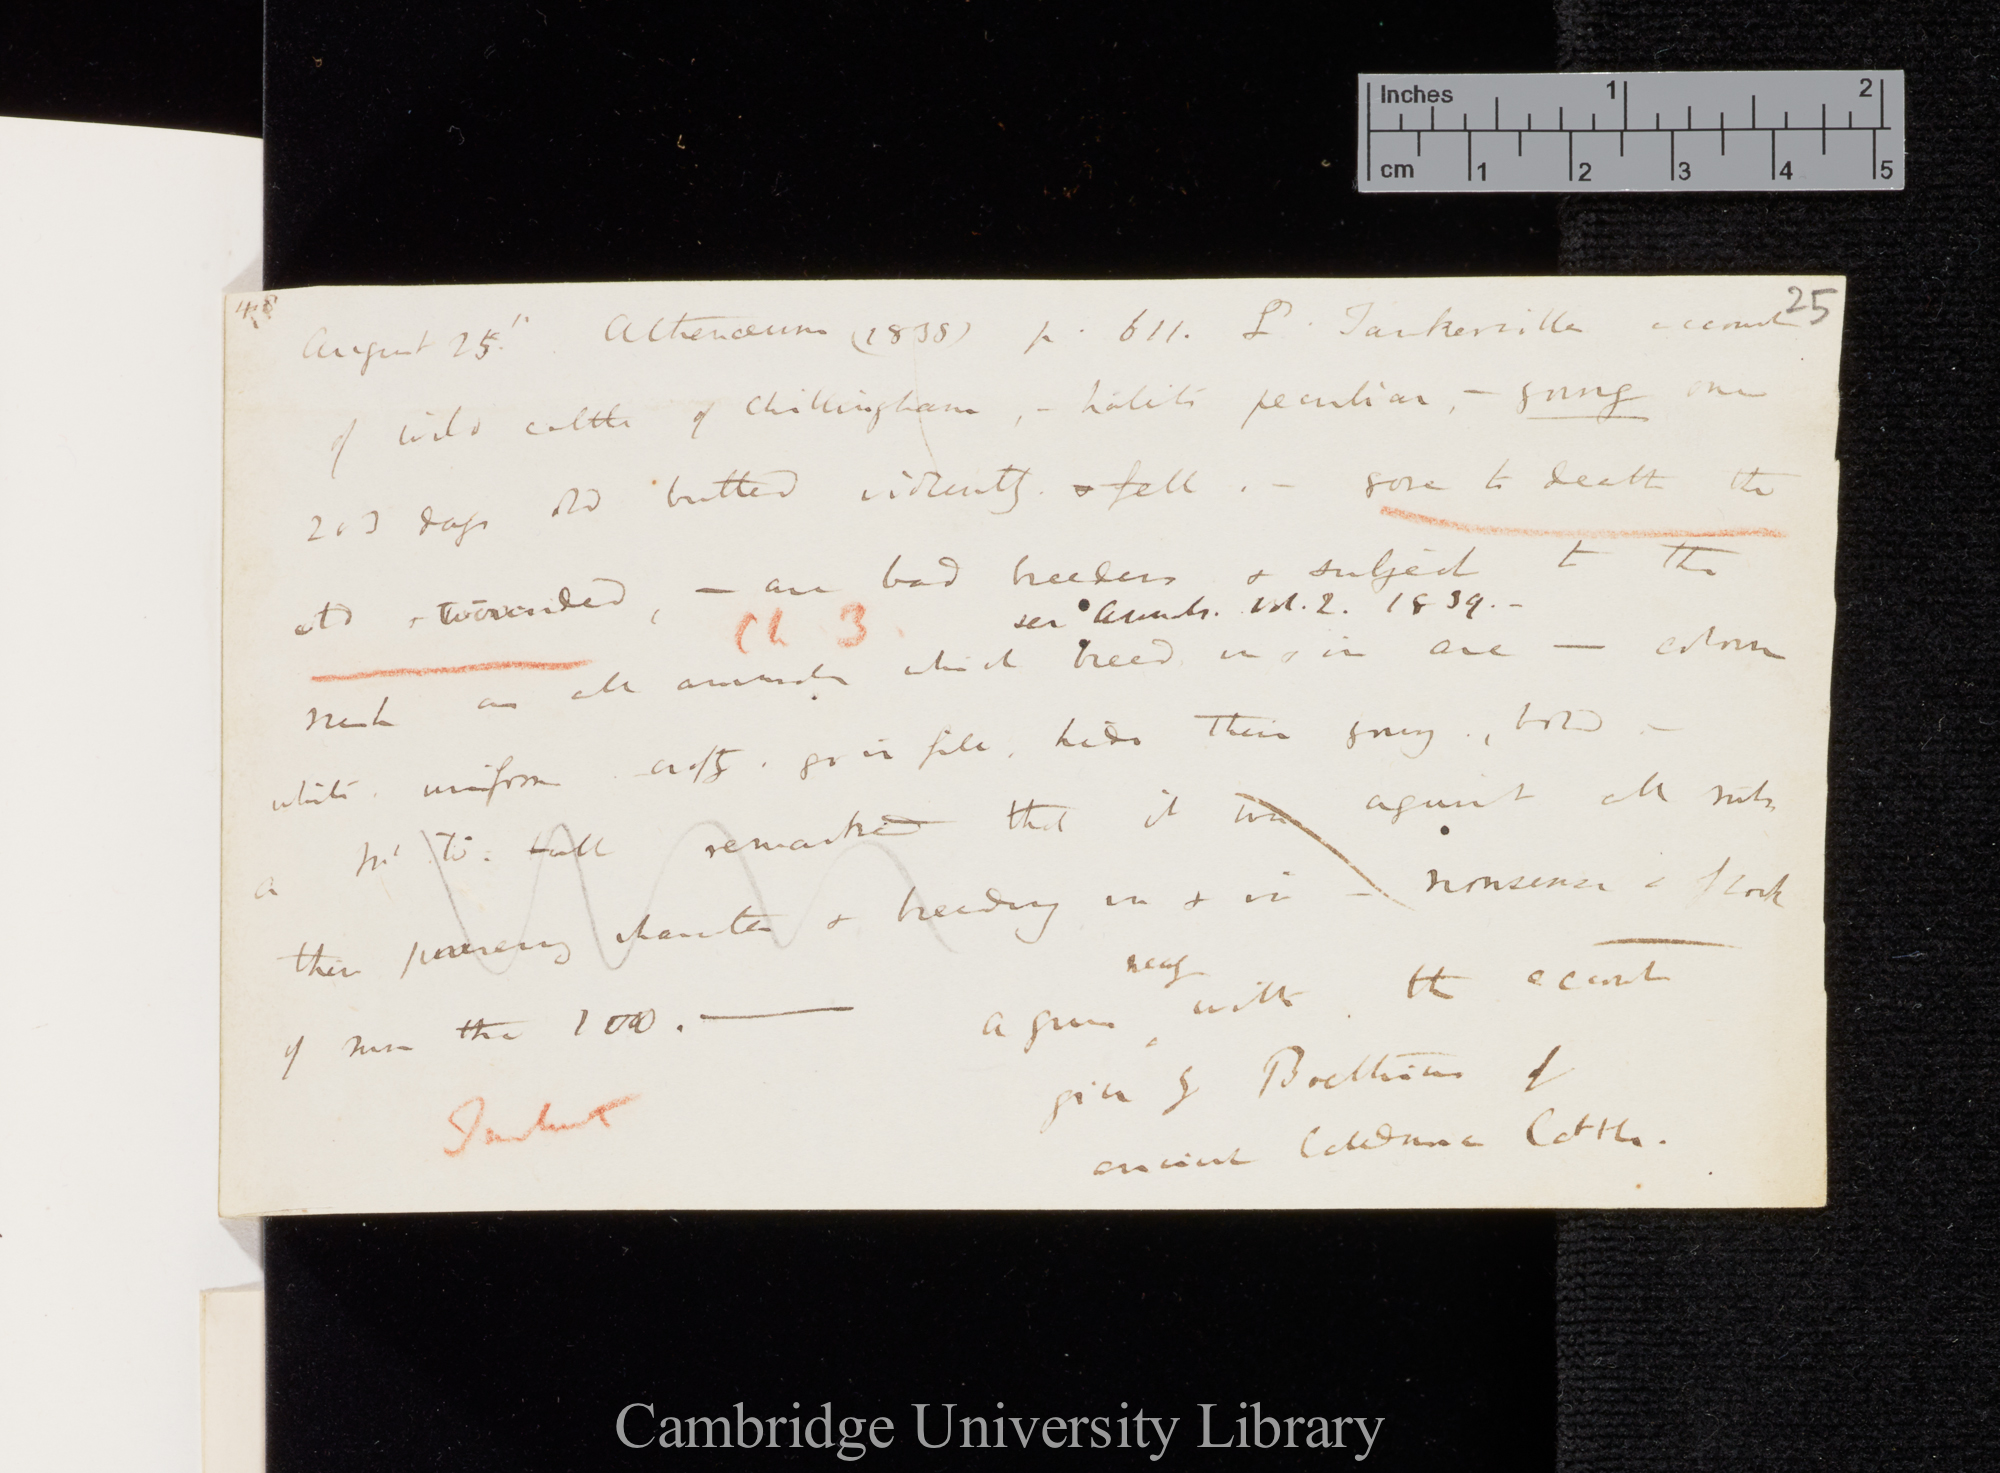 Inches 1 2
cm 1 2 3 4 5
25
August 25th Athenæum (1838) p. 611. Ld. Tankerville account
of wild cattle of Chillingham, – habits peculiar, – young one
2 or 3 days old butted violently & fell. – gore to death the
old & wounded, – are bad breeders & subject to the
Ch 3
see Annals. vol. 2. 1839. –
rush as all animals which breed in & in are — colour
white. uniform crafty. go in file. hide their young., bold –
Mr W. Hall remarked that it was against all rules
their preserving character & breeding in & in – nonsense a flock
of more than 100. —
agrees nearly with the account
given by Boethius of
ancient Caledonia Cattle.
Cambridge University Library